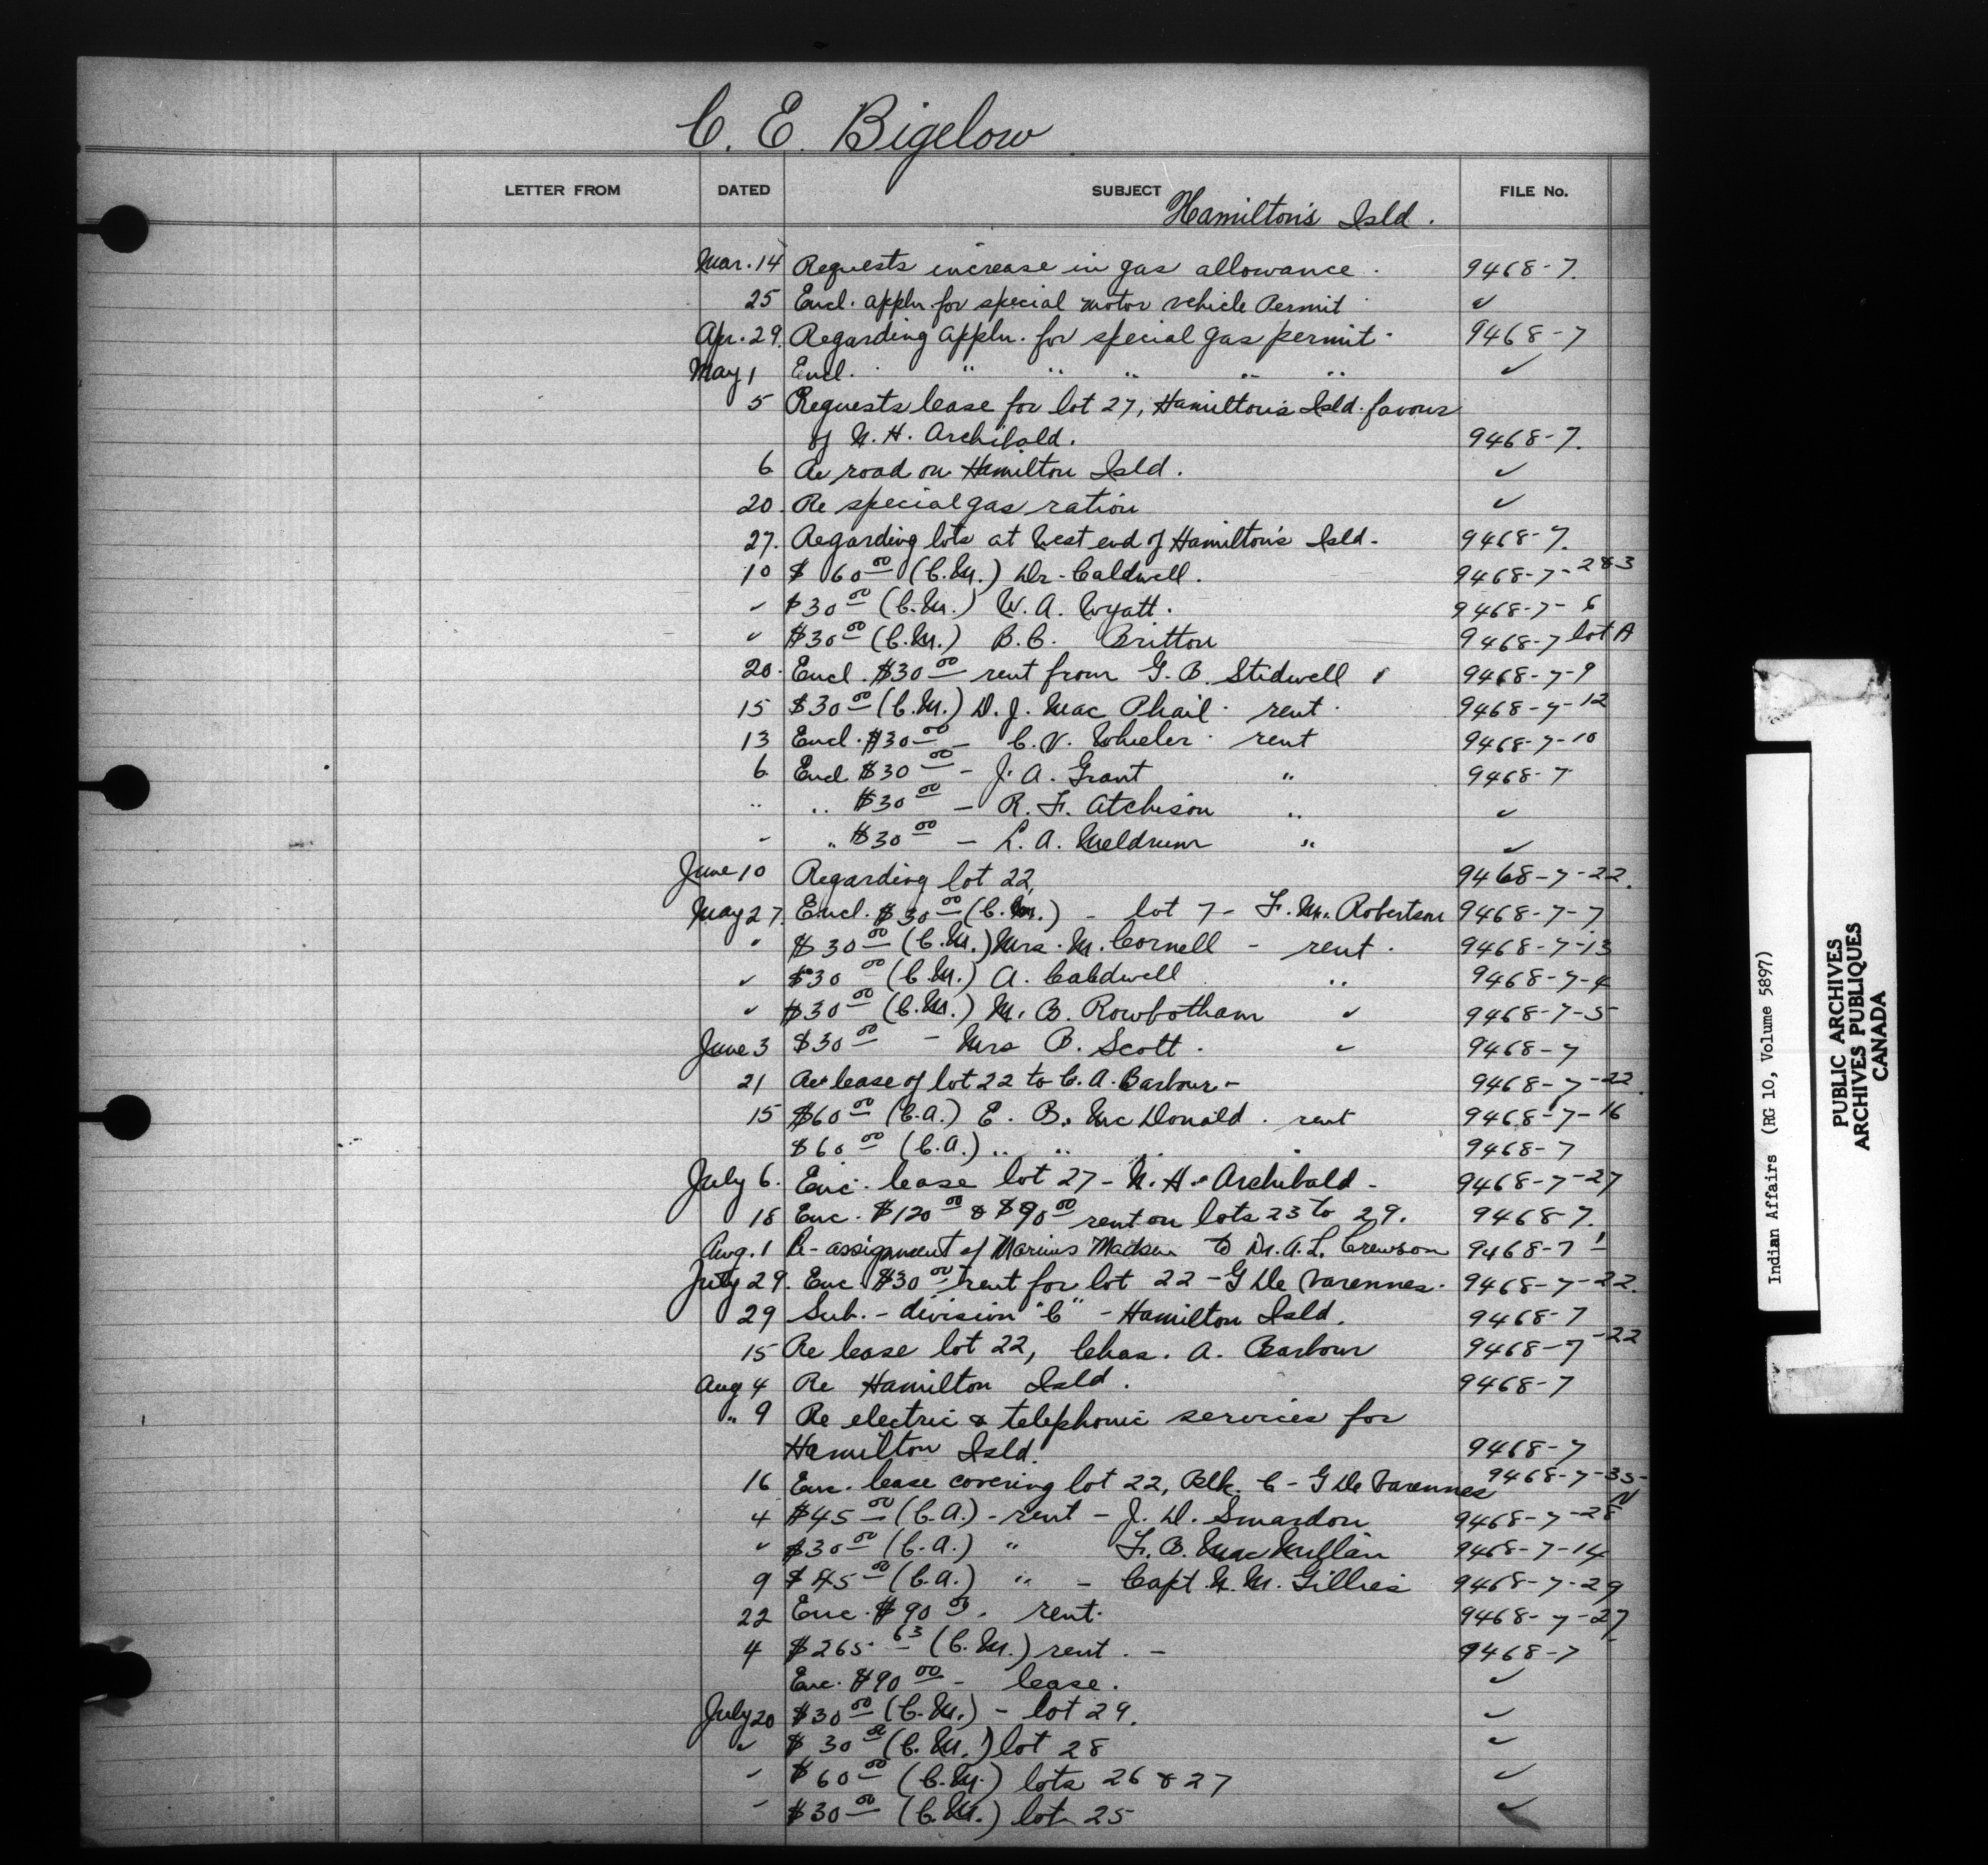 C. E. Bigelow
LETTER FROM DATED SUBJECT FILE No.
Hamilton's Isld.
Mar. 14 Requests increase in gas allowance. 9468-7.
25 Encl. appln for special motor vehicle Permit ✓
Apr. 29. Regarding appln. for special gas permit. 9468-7
May 1 Encl. " " " " " ✓
5 Requests lease for lot 27, Hamilton's Isld. favour
of N. H. Archibald. 9468-7.
6 Re road on Hamilton Isld. ✓
20. Re special gas ration ✓
27. Regarding lots at West end of Hamilton's Isld. 9468-7.
10 $60 00 (C.M.) Dr. Caldwell. 9468-7-2&3
" $30 00 (C.M.) W. A. Wyatt. 9468-7-6
" $30 00 (C.M.) B. C. Britton 9468-7 lot A
20. Encl. $30 00 rent from G. B. Stidwell 9468-7-9
15 $30 00 (C.M.) D. J. Mac Phail. rent. 9468-7-12
13 Encl. $30 00 - C. V. Wheeler. rent 9468-7-10
6 Encl. $30 00 - J. A. Grant " 9468-7
" " $30 00 - R. F. Atchison " ✓
" " $30 00 - L. A. Meldrum " ✓
June 10 Regarding lot 22, 9468-7-22.
May 27. Encl. $30 00 (C.M.) - lot 7 - F. M. Robertson 9468-7-7
" $30 00 (C.M.) Mrs. M. Cornell - rent. 9468-7-13
" $30 00 (C.M.) A. Caldwell " 9468-7-4
" $30 00 (C.M.) M. B. Rowbotham " 9468-7-5
June 3 $30 00 - Mrs B. Scott. " 9468-7
21 Re lease of lot 22 to C. A. Barbour - 9468-7-22
15 $60 00 (C.A.) E. B. McDonald. rent 9468-7-16
$60 00 (C.A.) " " " 9468-7
July 6. Enc. lease lot 27 - N. H. Archibald - 9468-7-27
18 Enc. $120 00 & $90 00 rent on lots 23 to 29. 9468-7.
Aug. 1 Re-assignment of Marius Madsen to Dr. A. L. Crewson 9468-7-1
July 29. Enc. $30 00 rent for lot 22 - G De Varennes. 9468-7-22.
29 Sub.-division "C" - Hamilton Isld. 9468-7
15 Re lease lot 22, Chas. A. Barbour 9468-7-22
Aug 4 Re Hamilton Isld. 9468-7
" 9 Re electric & telephonic services for
Hamilton Isld. 9468-7
16 Enc. lease covering lot 22, Blk. C - G De Varennes 9468-7-35-
4 $45 00 (C.A.) - rent - J. D. Smardon 9468-7-28 N
" $30 00 (C.A.) " F. B. MacMillan 9468-7-14
9 $45 00 (C.A.) " - Capt. N. M. Gillies 9468-7-29
22 Enc. $90 00. rent. 9468-7-27
4 $265 63 (C.M.) rent. - 9468-7
Enc. $90 00 - lease. ✓
July 20 $30 00 (C.M.) - lot 29. ✓
" $30 00 (C.M.) lot 28 ✓
" $60 00 (C.M.) lots 26 & 27 ✓
" $30 00 (C.M.) lot 25 ✓
Indian Affairs (RG 10, Volume 5897)
PUBLIC ARCHIVES
ARCHIVES PUBLIQUES
CANADA